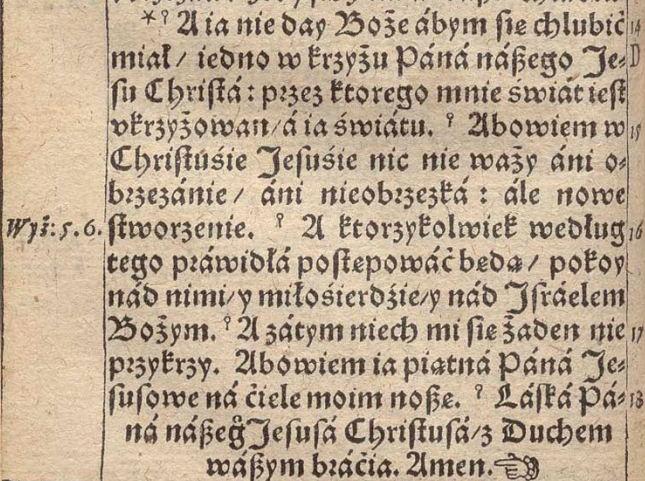 *? A ia nie day Boże ábym się chlubić 14
miał / iedno w krzyżu Páná nászego Je- D
su Christá : przez ktorego mnie świát iest
vkrzyżowan / á ia świátu. ? Abowiem w 15
Christuśie Jesuśie nic nie waży áni o-
brzezánie / áni nieobrzezká : ále nowe
Wyż: 5. 6. stworzenie. ? A ktorzykolwiek według 16
tego práwidłá postępowáć będą / pokoy
nád nimi / y miłośierdzie / y nád Jsráelem
Bożym. ? A zátym niech mi się żaden nie 17
przykrzy. Abowiem ia piątná Páná Je-
susowe ná ćiele moim noszę. ? Láská Pá- 18
ná nászeg̊ Jesusá Christusá / z Duchem
wászym bráćia. Amen. ☜